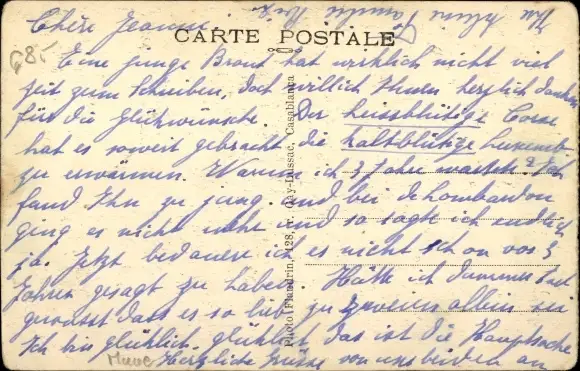 Chère Jeanne
CARTE POSTALE
685
Eine junge Braut hat wirklich nicht viel
Zeit zum Schreiben, doch will ich Ihnen herzlich danken
für die Glückwünsche. Der heissblütige Corse
hat es soweit gebracht die kaltblütige
zu erwärmen. Warum ich 3 Jahre wartete. Ich
fand Ihn zu jung und bei de Lombardon
ging es nicht mehr und so sagte ich endlich
ja. Jetzt bedauere ich es nicht schon vor 3
Jahren gesagt zu haben. Hätte ich
gewusst dass es so lieb zu zweien allein sei
Ich bin glücklich, glücklich das ist die Hauptsache
Herzliche Grüsse von uns beiden an
Photo Flandrin, 128, r. Gay-Lussac, Casablanca